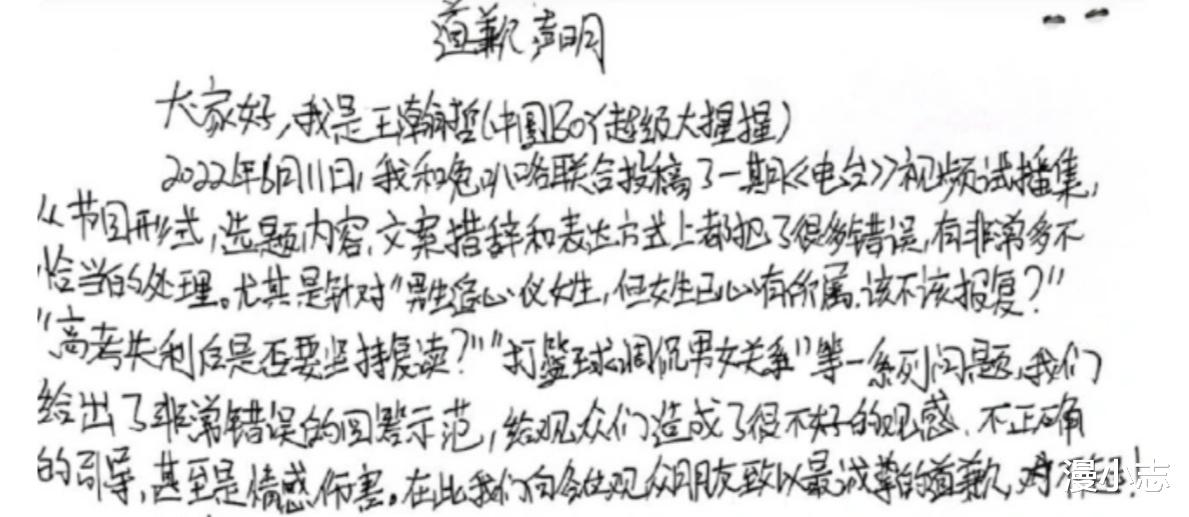 道歉声明
大家好,我是王瀚哲(中国BOY超级大猩猩)
2022年6月11日,我和兔叭咯联合投稿了一期《电台》视频试播集,
从节目形式,选题,内容,文案措辞和表达方式上都犯了很多错误,有非常多不
恰当的处理。尤其是针对“男生心仪女生,但女生已心有所属,该不该报复?”
“高考失利后是否要坚持复读?”“打篮球调侃男女关系”等一系列问题,我们
给出了非常错误的回答示范,给观众们造成了很不好的观感、不正确
的引导,甚至是情感伤害。在此我们向各位观众朋友致以最诚挚的道歉,对不起!
漫小志